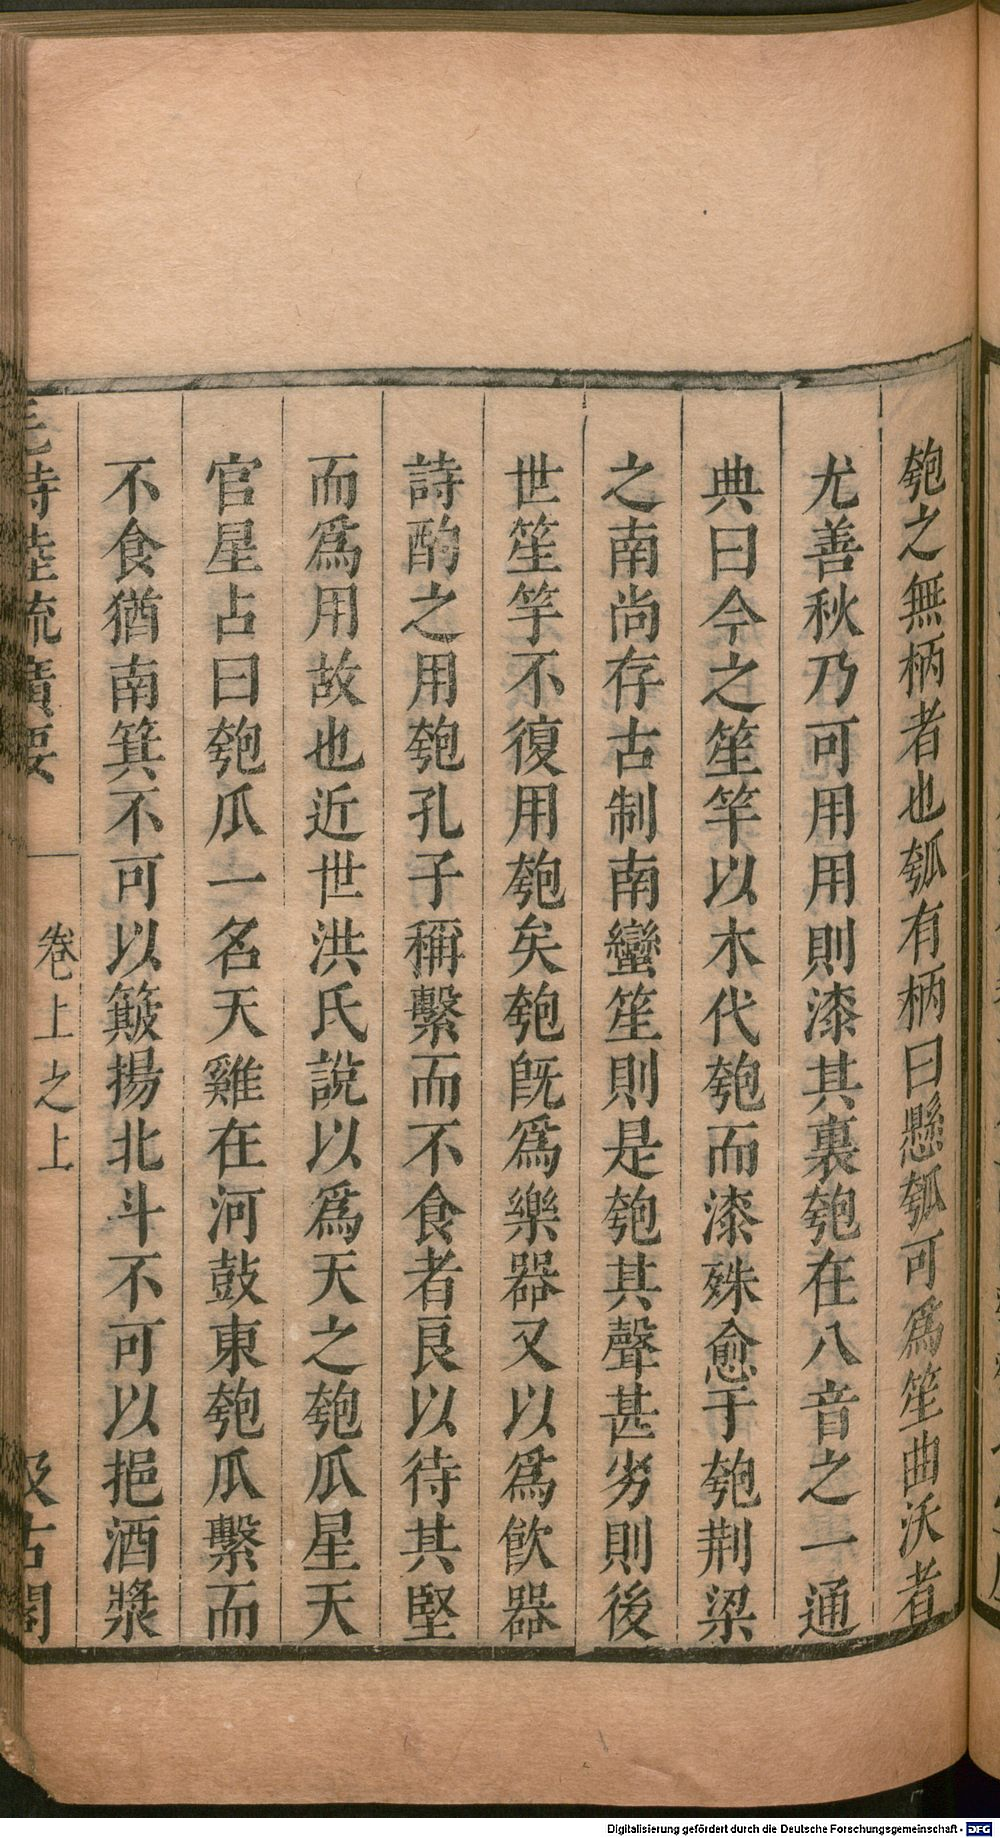 匏之無柄者也瓠有柄曰懸瓠可爲笙曲沃者
尤善秋乃可用用則漆其裏匏在八音之一通
典曰今之笙竽以木代匏而漆殊愈于匏荆梁
之南尚存古制南蠻笙則是匏其聲甚劣則後
世笙竽不復用匏矣匏旣爲樂器又以爲飲器
詩酌之用匏孔子稱繫而不食者良以待其堅
而爲用故也近世洪氏說以爲天之匏瓜星天
官星占曰匏瓜一名天雞在河鼓東匏瓜繫而
不食猶南箕不可以簸揚北斗不可以挹酒漿
毛詩陸疏廣要 卷上之上 汲古閣
Digitalisierung gefördert durch die Deutsche Forschungsgemeinschaft - DFG